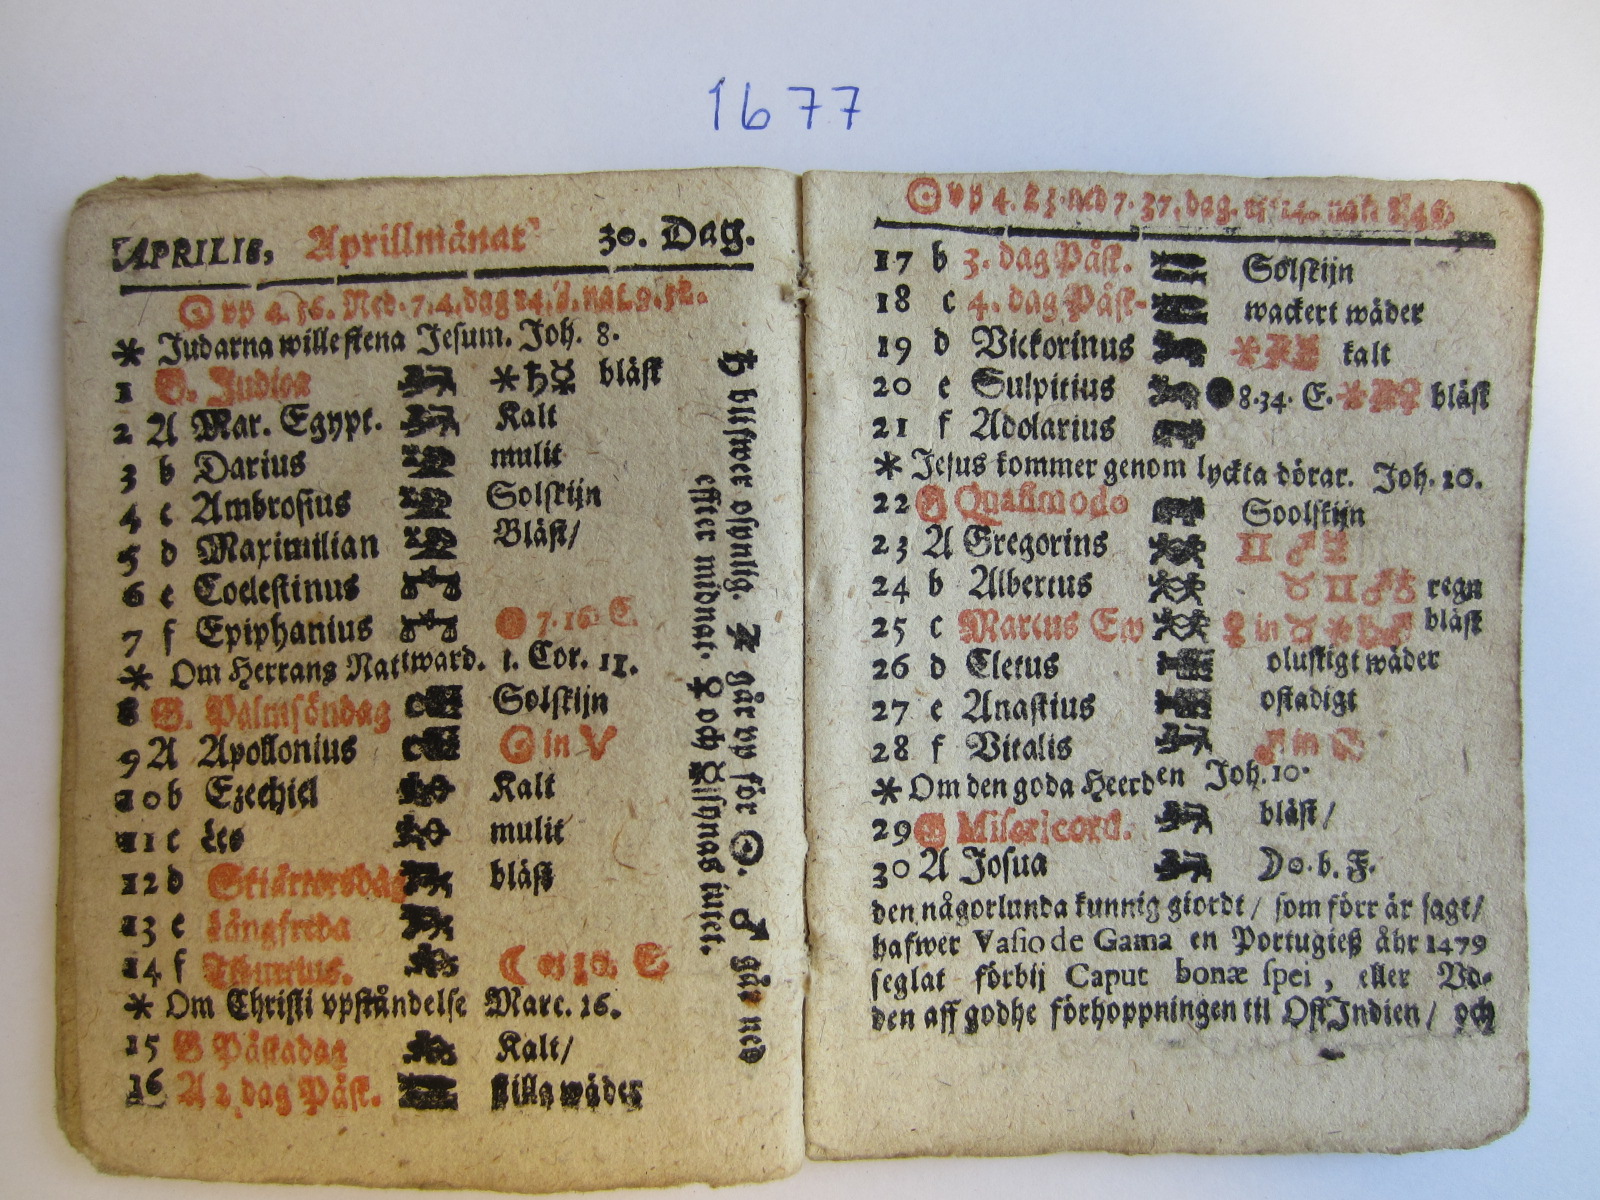 1677
APRILIS, Aprillmånat 30. Dag.
☉ vp 4. 56. Ned. 7. 4. dag 14. nat. 9.
* Judarna wille stena Jesum. Joh. 8.
1 G. Judica *♄☿ blåst
2 A Mar. Egypt. Kalt
3 b Darius mulit
4 c Ambrosius Solskijn
5 d Maximilian Blåst/
6 e Coelestinus
7 f Epiphanius 7. 16
* Om Herrans Nattward. 1. Cor. 11.
8 G. Palmsöndag Solskijn
9 A Apollonius ☉ in ♈
10 b Ezechiel Kalt
11 c Leo mulit
12 d blåst
13 e Långfreda
14 f Tiburtius. ☾
* Om Christi vpståndelse Marc. 16.
15 G Påskadag Kalt/
16 A 2. dag Påsk. stilla wäder
♄ blifwer osynlig. ♃ går vp för ☉. ♂ går ned
effter midnat. ♀ och ☿ synas intet.
☉ vp 4. 23. ned 7. 37. dag.
17 b 3. dag Påsk. Solskijn
18 c 4. dag Påsk- wackert wäder
19 d Vickorinus kalt
20 e Sulpitius ● 8.34. E. blåst
21 f Adolarius
* Jesus kommer genom lyckta dörar. Joh. 20.
22 G Quasimodo Soolskijn
23 A Gregorins ♊ ♂
24 b Albertus ♉ ♊ regn
25 c Marcus Ew ♀ in ♉ * blåst
26 d Cletus olustigt wäder
27 e Anastius ostadigt
28 f Vitalis ♂ in
* Om den goda Heerden Joh. 10.
29 G Misericord. blåst/
30 A Josua ☽ o. b. F.
den någorlunda kunnig giordt/ som förr är sagt/
hafwer Vasio de Gama en Portugieß åhr 1479
seglat förbij Caput bonæ spei, eller Vd-
den aff godhe förhoppningen til OstIndien/ och